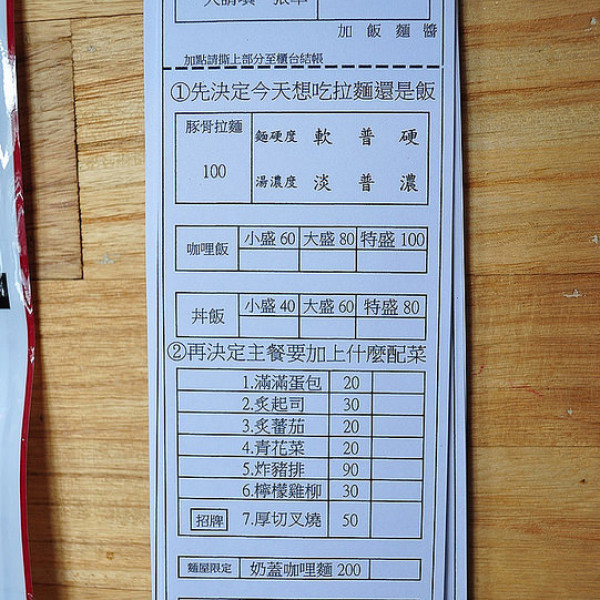 加 飯 麵 醬
加點請撕上部分至櫃台結帳
①先決定今天想吃拉麵還是飯
豚骨拉麵 100
麵硬度 軟 普 硬
湯濃度 淡 普 濃
咖哩飯 小盛 60 大盛 80 特盛 100
丼飯 小盛 40 大盛 60 特盛 80
②再決定主餐要加上什麼配菜
1.滿滿蛋包 20
2.炙起司 30
3.炙蕃茄 20
4.青花菜 20
5.炸豬排 90
6.檸檬雞柳 30
招牌 7.厚切叉燒 50
麵屋限定 奶蓋咖哩麵 200